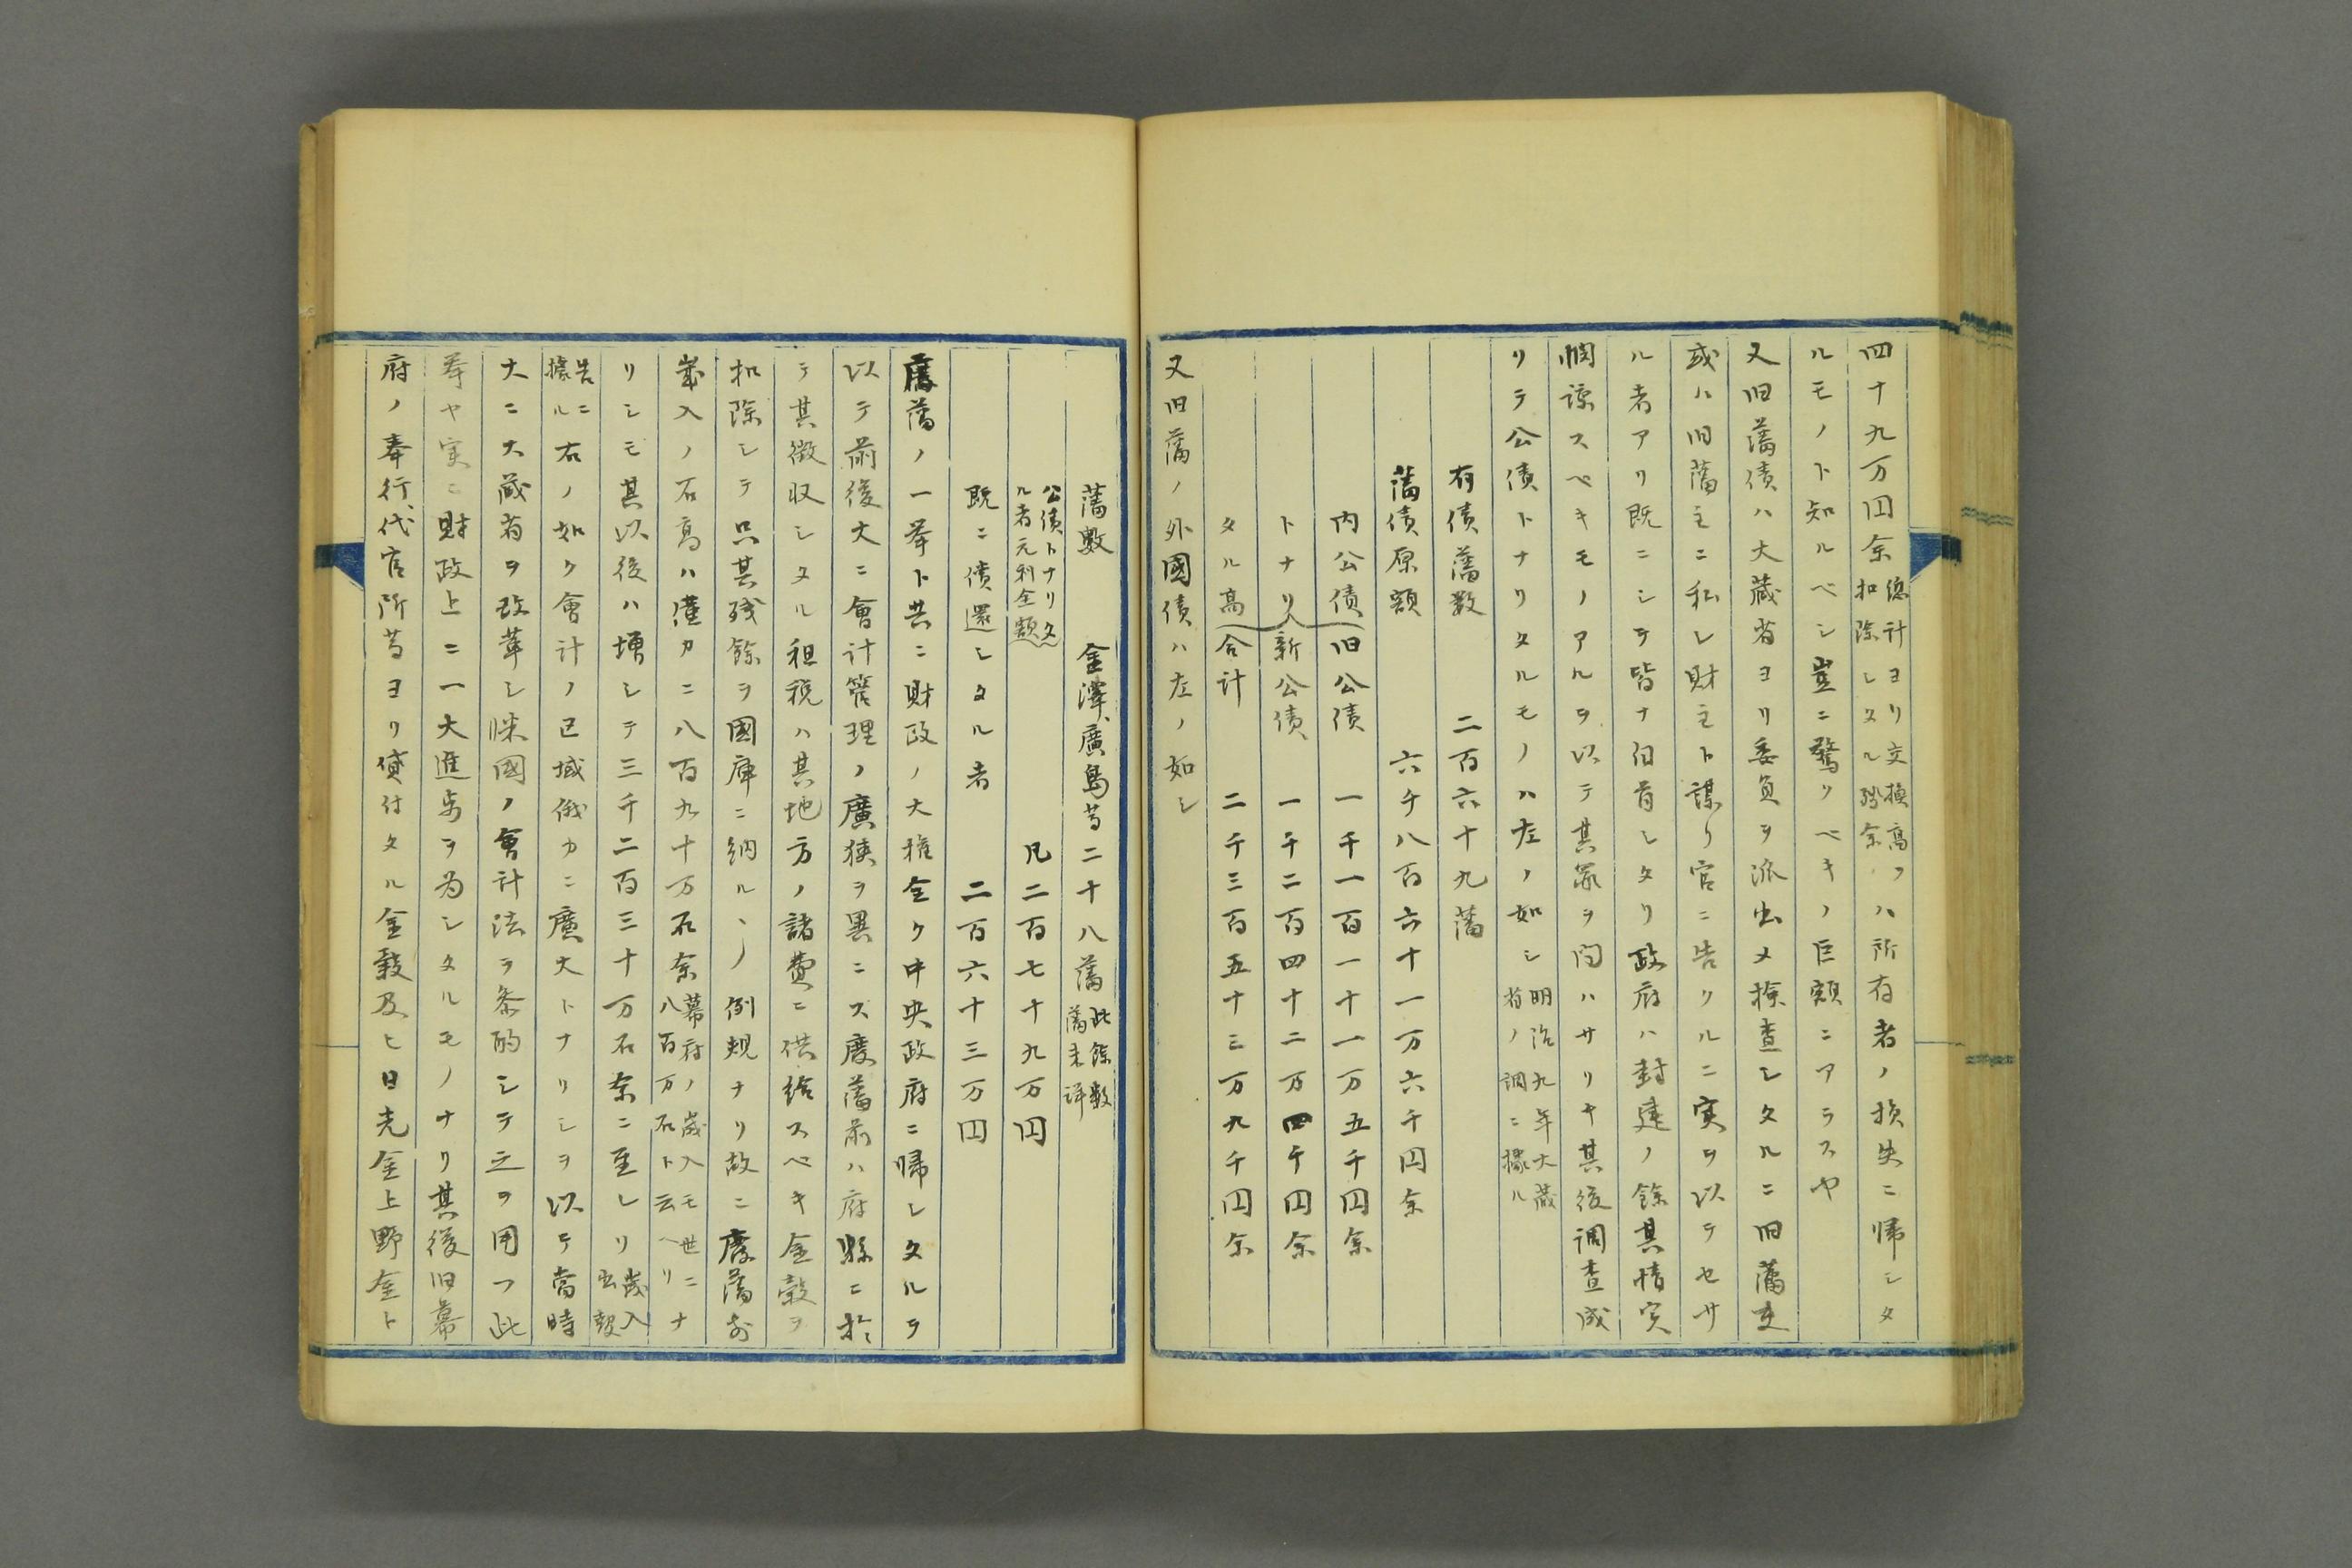 四十九万円余総計ヨリ交換高ヲ扣除シタル残余ハ所有者ノ損失ニ帰シタ
ルモノト知ルベシ豈ニ驚クベキノ巨額ニアラスヤ
又旧藩債ハ大蔵省ヨリ委員ヲ派出メ検査シタルニ旧藩吏
或ハ旧藩主ニ私シ財主ト謀リ官ニ告クルニ実ヲ以テセサ
ル者アリ既ニシテ皆ナ自首シタリ政府ハ封建ノ餘其情実
憫諒スベキモノアルヲ以テ其罪ヲ問ハサリキ其後調査成
リテ公債トナリタルモノハ左ノ如シ明治九年大蔵省ノ調ニ據ル
有債藩数 二百六十九藩
藩債原額 六千八百六十一万六千円余
内公債 旧公債 一千一百一十一万五千円余
トナリ 新公債 一千二百四十二万四千円余
タル高 合計 二千三百五十三万九千円余
又旧藩ノ外國債ハ左ノ如シ
藩數 金澤、廣島等二十八藩此餘数藩未詳
公債トナリタル者元利全額 凡二百七十九万円
既ニ償還シタル者 二百六十三万円
廢藩ノ一挙ト共ニ財政ノ大権全ク中央政府ニ帰シタルヲ
以テ前後大ニ會計管理ノ廣狭ヲ異ニス廢藩前ハ府縣ニ於
テ其徴収シタル租税ハ其地方ノ諸費ニ供給スベキ金穀ヲ
扣除シテ只其残餘ヲ國庫ニ納ルヽノ例規ナリ故ニ廢藩前
歳入ノ石高ハ僅カニ八百九十万石余幕府ノ歳入モ世ニ八百万石ト云ヘリナ
リシモ其以後ハ増シテ三千二百三十万石余ニ至レリ歳入出報
告ニ據ル右ノ如ク會計ノ区域俄カニ廣大トナリシヲ以テ當時
大ニ大蔵省ヲ改革シ佛國ノ會計法ヲ参酌シテ之ヲ用フ此
挙ヤ実ニ財政上ニ一大進歩ヲ為シタルモノナリ其後旧幕
府ノ奉行、代官所等ヨリ貸付タル金穀及ヒ日光金上野金ト